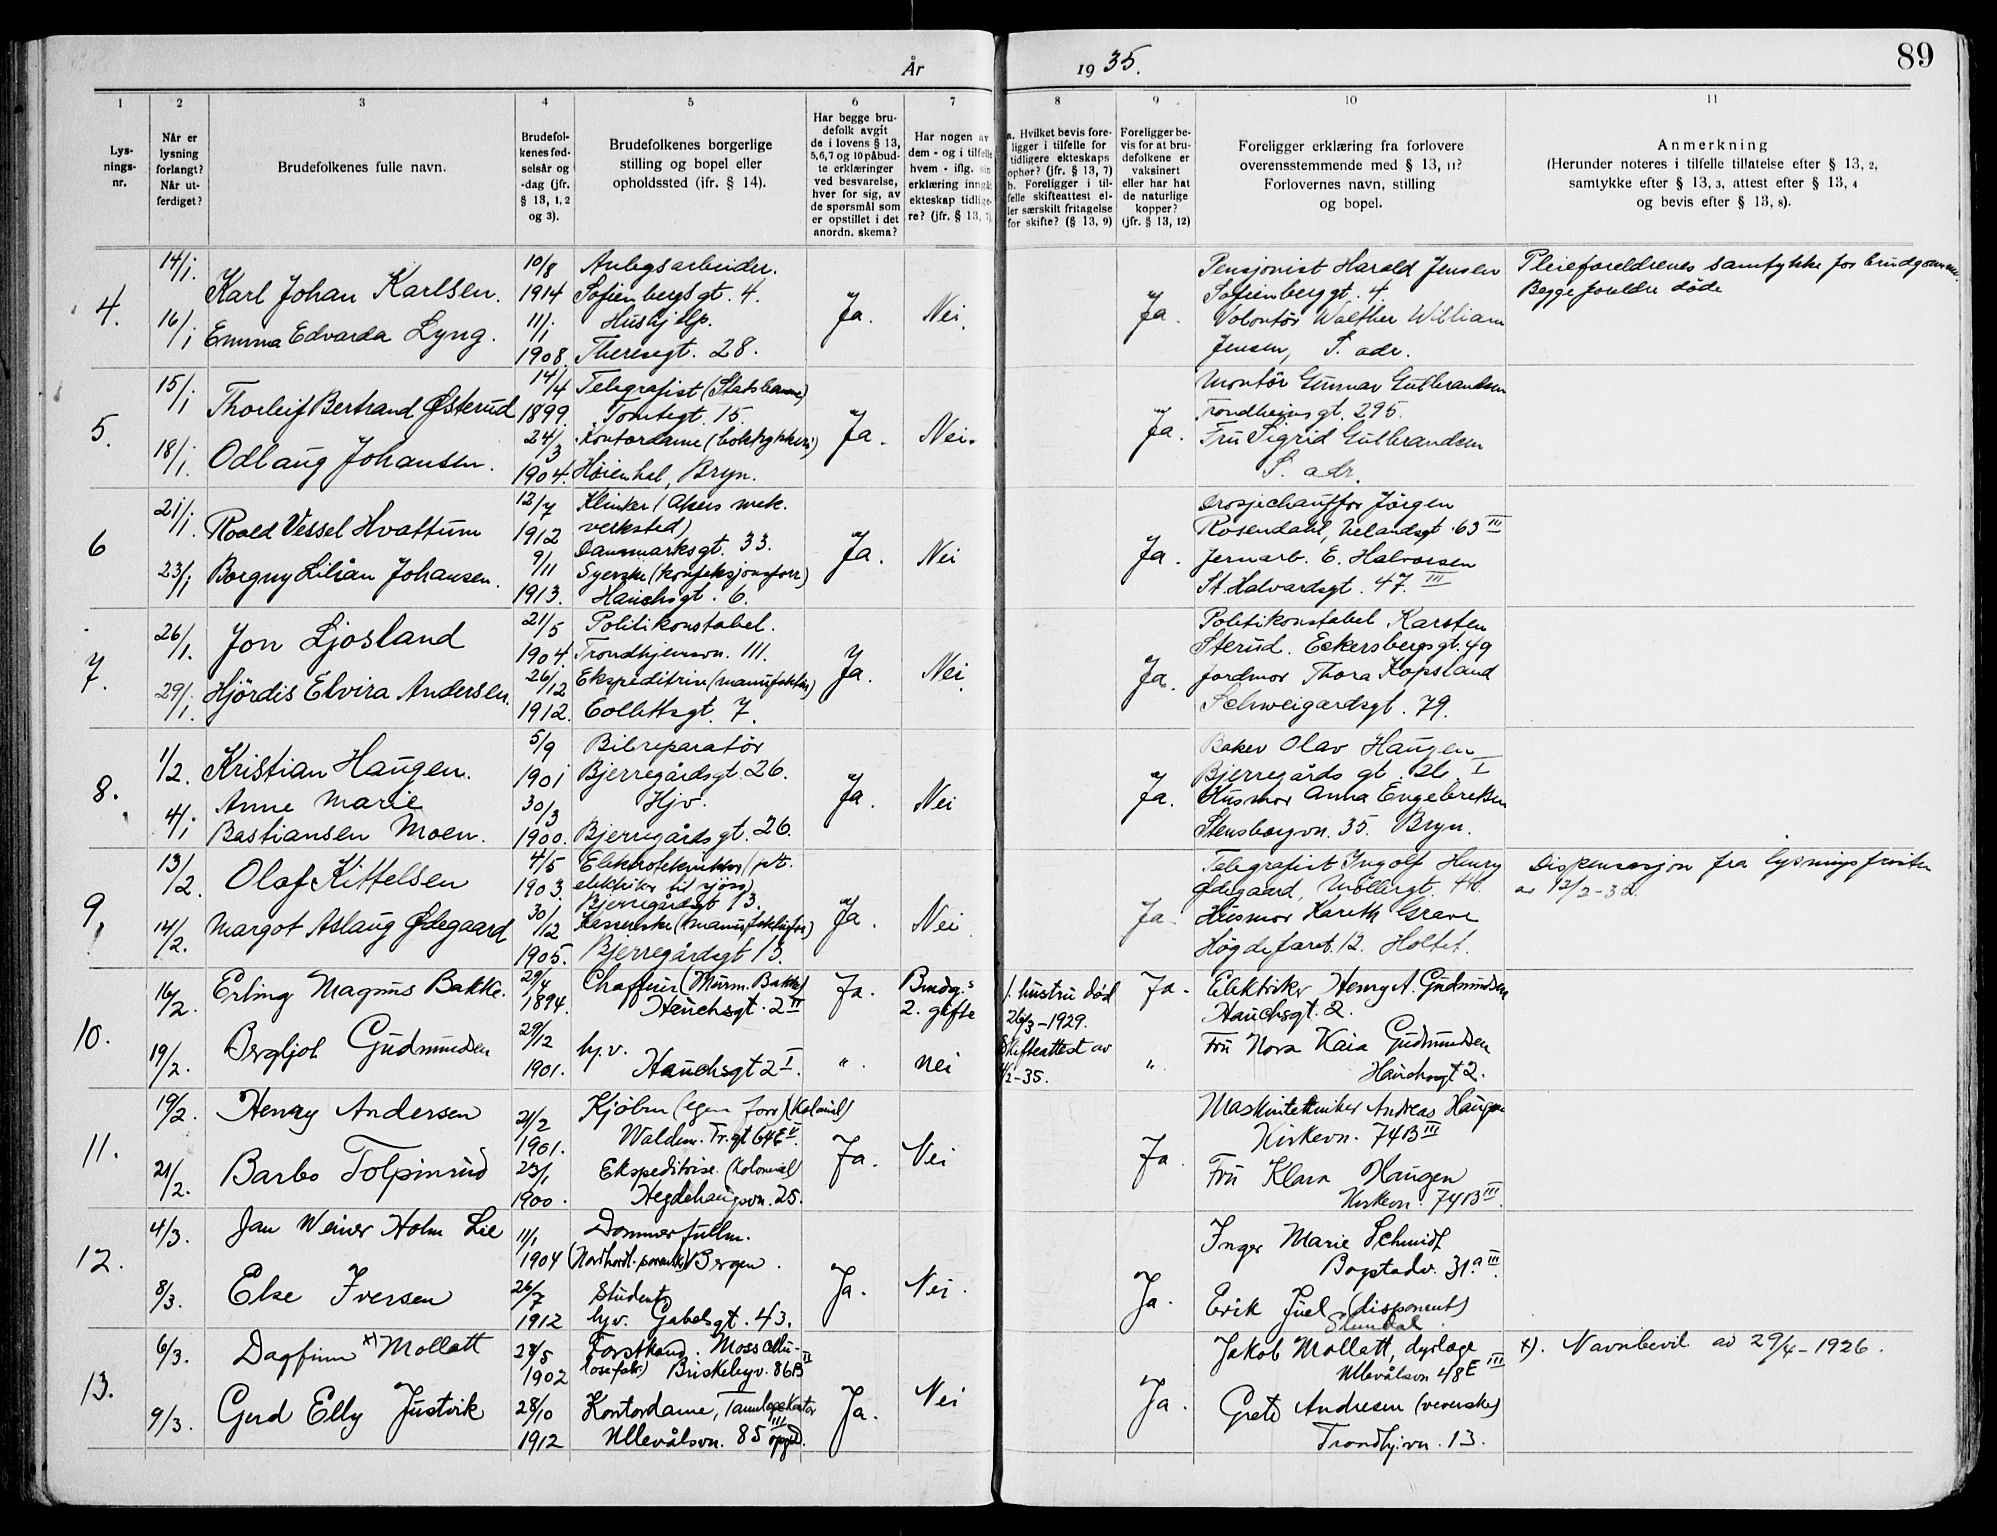 År 19 35.
89
1
2
3
4
5
6
7
8
9
10
11
Lys-
nings-
nr.
Når er
lysning
forlangt?
Når ut-
ferdiget?
Brudefolkenes fulle navn.
Brudefol-
kenes fød-
selsår og
-dag (jfr.
§ 13, 1, 2
og 3).
Brudefolkenes borgerlige
stilling og bopel eller
opholdssted (ifr. § 14).
Har begge bru-
defolk avgit
de i lovens § 13,
5,6,7 og 10 påbud-
te erklæringer
ved besvarelse,
hver for sig, av
de spørsmål som
er opstillet i det
anordn. skema?
Har nogen av
dem - og i tilfelle
hvem - iflg. sin
erklæring inngåt
ekteskap tidlige-
re? (jfr. § 13, 7)
a. Hvilket bevis fore-
ligger i tilfelle for
tidligere ekteskaps
ophør? (jfr. § 13, 7)
b. Foreligger i til-
felle skifteattest el-
ler særskilt fritagelse
for skifte? (§ 13, 9)
Foreligger be-
vis for at bru-
defolkene er
vaksinert
eller har hat
de naturlige
kopper?
(jfr. § 13, 12)
Foreligger erklæring fra forlovere
overensstemmende med § 13, 11?
Forlovernes navn, stilling
og bopel.
Anmerkning
(Herunder noteres i tilfelle tillatelse efter § 13, 2,
samtykke efter § 13, 3, attest efter § 13, 4
og bevis efter § 13, 8).
4.
14/1.
16/1
Karl Johan Karlsen.
Emma Edvarda Lyng.
10/8
1914
11/1
1908
Anlegsarbeider.
Sofienbergsgt. 4.
Hushjelp.
Theresegt. 28.
Ja.
Nei.
Ja.
Pensjonist Harald Jensen
Sofienberggt. 4.
Volontør Walther William
Jensen, S. adr.
Pleieforeldrenes samtykke for brudgommen.
Begge foreldre døde
5.
15/1
18/1.
Thorleif Bertrand Østerud
Odlaug Johansen.
14/4
1899.
24/3
1904.
Telegrafist (Statsbanene)
Tomtegt. 15.
Kontordame (boktrykkeri)
Høienhal, Bryn.
Ja.
Nei.
Ja.
Montør Gunnar Gulbrandsen
Trondheimsgt. 295.
Fru Sigrid Gulbrandsen
S. adr.
6
21/1.
23/1
Roald Vessel Hvattum
Borgny Lilian Johansen.
12/7
1912
9/11
1913.
Klinker (Akers mek.
verksted)
Danmarksgt. 33.
Syerske (konfeksjonsforr)
Hauchsgt. 6.
Ja.
Nei
Ja.
Drosjechauffør Jörgen
Rosendahl, Welandsgt. 63 III
Jernarb. E. Halvorsen
St. Halvardsgt. 47. III
7.
26/1.
29/1.
Jon Ljosland
Hjördis Elvira Andersen.
21/5
1904.
26/12
1912.
Politikonstabel.
Trondhjemsvn. 111.
Ekspeditrise (manufaktur)
Collettsgt. 7.
Ja.
Nei.
Ja.
Politikonstabel Karsten
Sterud. Eckersbergsgt. 49
Jordmor Thora Kopsland
Schweigardsgt. 79.
8.
1/2.
4/1
Kristian Haugen.
Anne Marie
Bastiansen Moen.
5/9
1901
30/3
1900.
Bilreparatør
Bjerregårdsgt. 26.
Hjv.
Bjerregårdsgt. 26.
Ja.
Nei
Ja.
Baker Olav Haugen
Bjerregårds gt. 26 I
Husmor Anna Engebretsen
Stensborgvn. 35. Bryn.
9.
13/2.
14/2.
Olaf Kittelsen
Margot Aslaug Ødegaard
4/5
1903.
30/12
1905.
Elektrotekniker (pt.
elektriker til sjøss)
Bjerregårdsgt 13.
Kassererske (manufakturforr)
Bjerregårdsgt 13.
Ja
Nei
Ja.
Telegrafist Ingolf Henry
Ødegaard, Møllergt. 40.
Husmor Kareth Grave
Högdefaret. 12. Holtet.
Dispensasjon fra lysningsfristen
av 12/2-35.
10.
16/2.
19/2.
Erling Magnus Bakke.
Bergljot Gudmundsen
29/4
1894.
29/12
1901.
Chaffeur (Murm. Bakke)
Hauchsgt. 2 II
hj.v.
Hauchsgt 2 I.
Ja.
".
Brudg.s
2. gifte
nei
1. hustru død
26/3-1929.
Skifteattest av
4/2-35.
Ja.
"
Elektriker Henry A. Gudmundsen
Hauchsgt. 2.
Fru Nora Kaia Gudmundsen
Hauchsgt 2.
11.
19/2.
21/2.
Henry Andersen
Barbo Tolpinrud
21/2
1901.
23/1
1900.
Kjøbm (egen forr) (Kolonial)
Waldem. Tr. gt 64E V.
Ekspeditrise. (Kolonial)
Hegdehaugsvn. 25.
Ja.
Nei
Ja.
Maskintekniker Andreas Haugen
Kirkevn. 74B III
Fru Klara Haugen
Kirkevn. 74B III.
12.
4/3.
8/3.
Jan Weiner Holm Lie
Else Iversen
11/1
1904
26/7
1912
Dommerfullm.
(Nordhordl. sorenskr) Bergen.
Student
hjv. Gabelsgt. 43.
Ja.
Nei.
Ja.
Inger Marie Schmidt
Bogstadv. 31.a III.
Erik Juel (disponent)
Slemdal.
13.
6/3.
9/3.
Dagfinn x) Mollatt
Gerd Elly Justvik
28/5
1902
28/10
1912
Forstkand. Moss cellu-
losefabr) Briskebyv. 86B II
Kontordame, Tannlægekontor
Ullevålsvn. 85 III opgd.
Ja.
Nei
Ja.
Jakob Mollatt, dyrlæge
Ullevålsvn 48E III
Grete Andresen (veverske)
Trondhj.vn. 13.
x). Navnbevil av 29/4-1926.